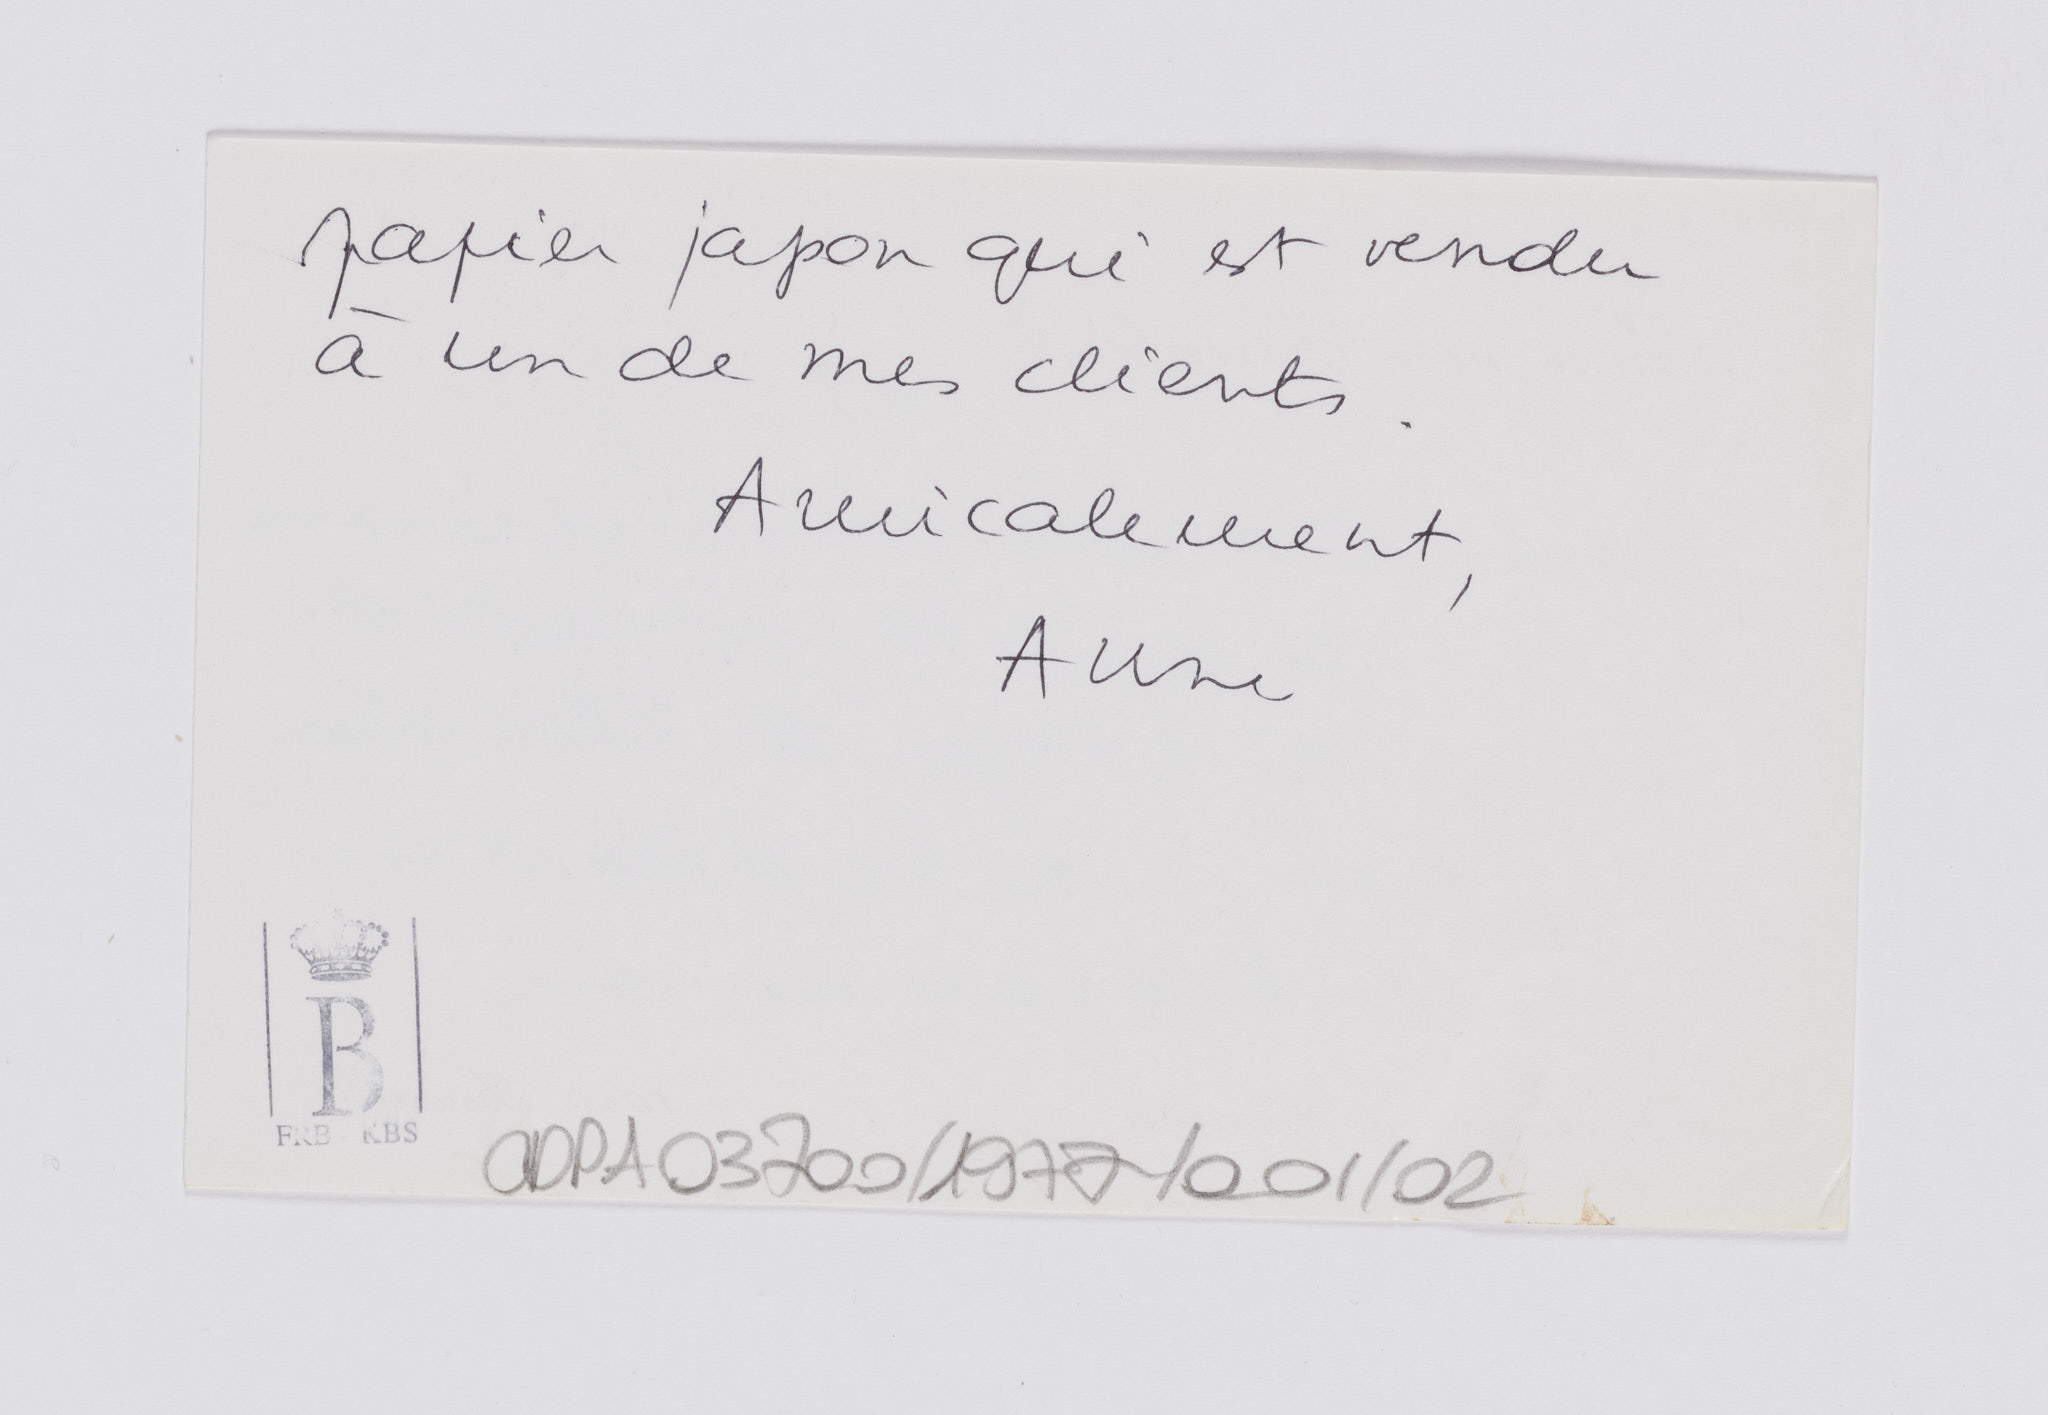 papier japon qui est vendu
à un de mes clients.
Amicalement,
Anne
B
FRB KBS
ADPA03700/1977/001/02